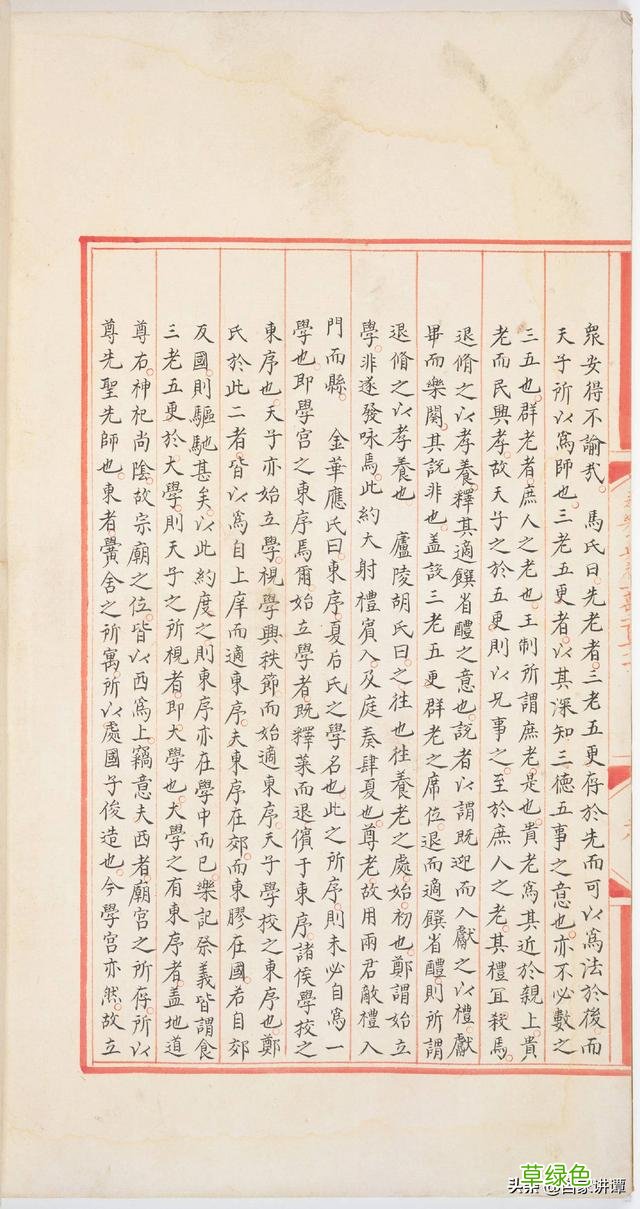 衆安得不諭哉。馬氏曰。先老者。三老五更存於先而可以爲法於後而
天子所以爲師也。三老五更者。以其深知三德五事之意也。亦不必數之
三五也。群老者。庶人之老也。王制所謂庶老是也。貴老爲其近於親。上貴
老而民興孝。故天子之於五更。則以兄事之。至於庶人之老。其禮冝殺焉。
退脩之以孝養。釋其適饌省醴之意也。說者以謂既迎而入。獻之以禮。獻
畢而樂闋。其說非也。盖設三老五更群老之席位。退而適饌省醴。則所謂
退脩之以孝養也。廬陵胡氏曰。之往也。往養老之處。始初也。鄭謂始立
學。非遂發咏焉。此約大射禮賓入及庭奏肆夏也。尊老故用兩君敵禮。入
門而縣。金華應氏曰。東序。夏后氏之學名也。此之所序。則未必自爲一
學也。即學宫之東序焉爾。始立學者。既釋菜而退儐于東序。諸侯學校之
東序也。天子亦始立學。視學興秩節而始適東序。天子學校之東序也。鄭
氏於此二者。皆以爲自上庠而適東序。夫東序在郊。而東膠在國。若自郊
反國。則驅馳甚矣。以此約度之。則東序亦在學中而已。樂記祭義皆謂食
三老五更於大學。則天子之所視者。即大學也。大學之有東序者。盖地道
尊右。神祀尚陰。故宗廟之位。皆以西爲上。竊意夫西者。廟宫之所存。所以
尊先聖先師也。東者。黌舍之所寓。所以處國子俊造也。今學宫亦然。故立
草绿色
头条 @百家讲谭